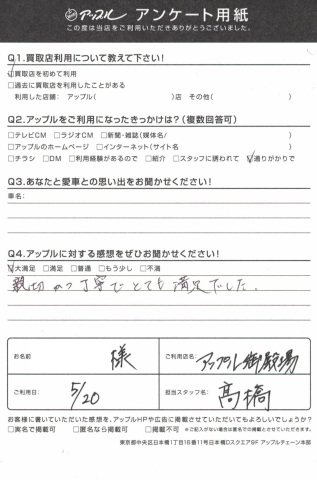 アップル アンケート用紙
この度は当店をご利用いただきありがとうございました。
Q1.買取店利用について教えて下さい!
☑買取店を初めて利用
□過去に買取店を利用したことがある
利用した店舗: アップル( )店 その他( )
Q2.アップルをご利用になったきっかけは?(複数回答可)
□テレビCM □ラジオCM □新聞・雑誌(媒体名/ )
□アップルのホームページ □インターネット(サイト名 )
□チラシ □DM □利用経験があるので □紹介 □スタッフに誘われて ☑通りがかりで
Q3.あなたと愛車との思い出をお聞かせください!
車名:
Q4.アップルに対する感想をぜひお聞かせください!
☑大満足 □満足 □普通 □もう少し □不満
親切かつ丁寧でとても満足でした.
お名前 様 ご利用店名: アップル御殿場
ご利用日: 5/20 担当スタッフ名: 高橋
お客様に書いていただいた感想を、アップルHPや広告に掲載させていただいてもよろしいでしょうか?
□実名で掲載可 □匿名なら掲載可 □掲載不可 ※ご記入がない場合は匿名での掲載とさせていただきます。
東京都中央区日本橋1丁目16番11号日本橋Dスクエア9F アップルチェーン本部